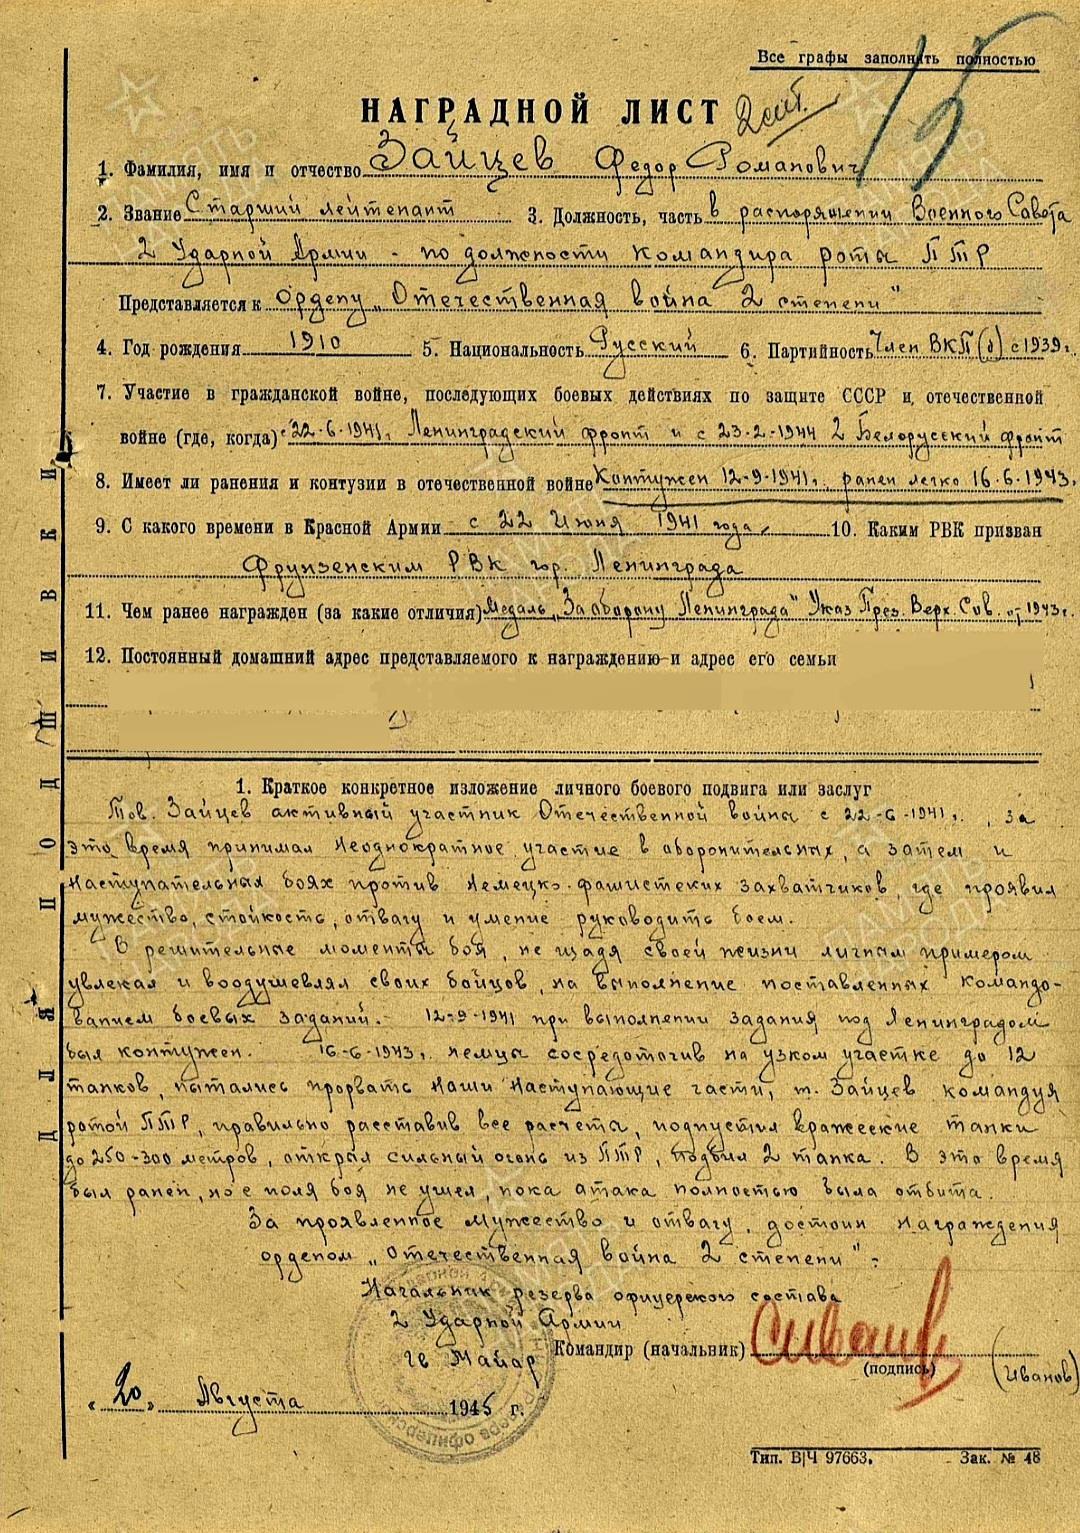 Все графы заполнять полностью
15
НАГРАДНОЙ ЛИСТ 2 ст.
1. Фамилия, имя и отчество Зайцев Федор Романович
2. Звание Старший лейтенант 3. Должность, часть в распоряжении Военного Совета
2 Ударной Армии - по должности командира роты ПТР
Представляется к ордену „Отечественная война 2 степени"
4. Год рождения 1910 5. Национальность Русский 6. Партийность Член ВКП(б) с 1939 г.
7. Участие в гражданской войне, последующих боевых действиях по защите СССР и отечественной
войне (где, когда) с 22-6-1941г. Ленинградский фронт и с 23-2-1944 2 Белорусский фронт
8. Имеет ли ранения и контузии в отечественной войне Контужен 12-9-1941г. ранен легко 16.6.1943г.
9. С какого времени в Красной Армии с 22 Июня 1941 года. 10. Каким РВК призван
Фрунзенским РВК гор. Ленинграда
11. Чем ранее награжден (за какие отличия) Медаль „За оборону Ленинграда" Указ През. Верх. Сов. от 1943г.
12. Постоянный домашний адрес представляемого к награждению и адрес его семьи
1. Краткое конкретное изложение личного боевого подвига или заслуг
Тов. Зайцев активный участник Отечественной войны с 22-6-1941г., за
это время принимал неоднократное участие в оборонительных, а затем и
наступательных боях против немецко-фашистских захватчиков, где проявил
мужество, стойкость, отвагу и умение руководить боем.
В решительные моменты боя, не щадя своей жизни личным примером
увлекал и воодушевлял своих бойцов, на выполнение поставленных командо-
ванием боевых заданий. 12-9-1941 при выполнении задания под Ленинградом
был контужен. 16-6-1943г. немцы сосредоточив на узком участке до 12
танков, пытались прорвать наши наступающие части, т. Зайцев командуя
ротой ПТР, правильно расставив все расчеты, подпустил вражеские танки
до 250-300 метров, открыл сильный огонь из ПТР, подбил 2 танка. В это время
был ранен, но с поля боя не ушел, пока атака полностью была отбита.
За проявленное мужество и отвагу, достоин награждения
орденом „Отечественная война 2 степени".
Начальник резерва офицерского состава
2 Ударной Армии
гв. Майор Командир (начальник)
(подпись) (Иванов)
„20" Августа 1945 г.
Тип. В/Ч 97663. Зак. № 48
ДЛЯ ПОДШИВКИ
ПАМЯТЬ НАРОДА